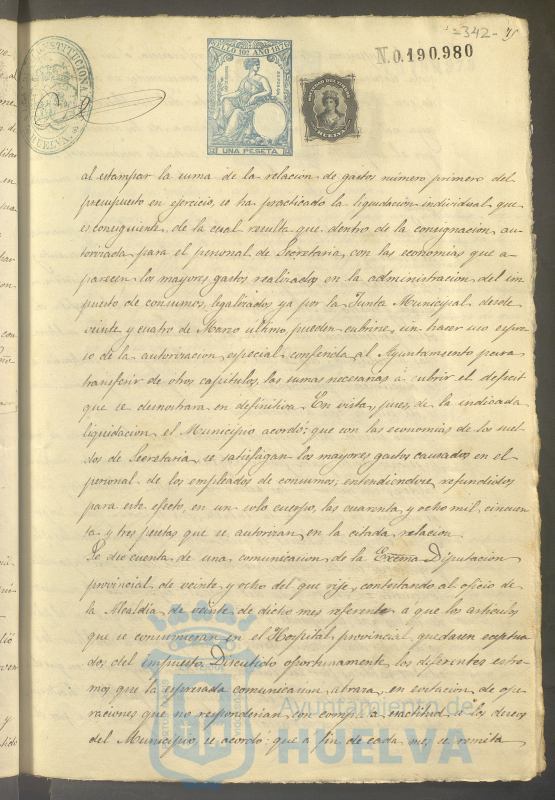 =342=
N.0.190.980
SELLO 10º AÑO 1879
UNA PESETA
HUELVA
CONSTITUCIONAL
HUELVA
al estampar la suma de la relacion de gastos número primero del
presupuesto en ejercicio, se ha practicado la liquidacion individual que
es consiguiente, de la cual resulta que dentro de la consignacion au-
torizada para el personal de Secretaria, con las economías que a-
parecen los mayores gastos realizados en la administracion del im-
puesto de consumos, legalizados ya por la Junta Municipal desde
veinte y cuatro de Marzo último, pueden cubrirse, sin hacer uso espre-
so de la autorizacion especial conferida al Ayuntamiento para
transferir de otros capítulos, las sumas necesarias á cubrir el deficit
que se demostrara en definitiva. En vista, pues, de la indicada
liquidacion, el Municipio acordó: que con las economías de los suel-
dos de Secretaria, se satisfagan los mayores gastos causados en el
personal de los empleados de consumos, entendiendose refundidos
para este efecto, en un solo cuerpo, las cuarenta y ocho mil, cincuen-
ta y tres pesetas que se autorizan en la citada relacion.
Se dio cuenta de una comunicacion de la Excma Diputacion
provincial de veinte y ocho del que rije, contestando al oficio de
la Alcaldia de veinte de dicho mes referente a que los artículos
que se consumieran en el Hospital provincial quedasen eceptua-
dos del impuesto. Discutido oportunamente los diferentes estre-
mos que la espresada comunicacion abraza, en evitacion de ope-
raciones que no responderian con completa exactitud a los deseos
del Municipio, se acordó: que a fin de cada mes se remita
Ayuntamiento de
HUELVA